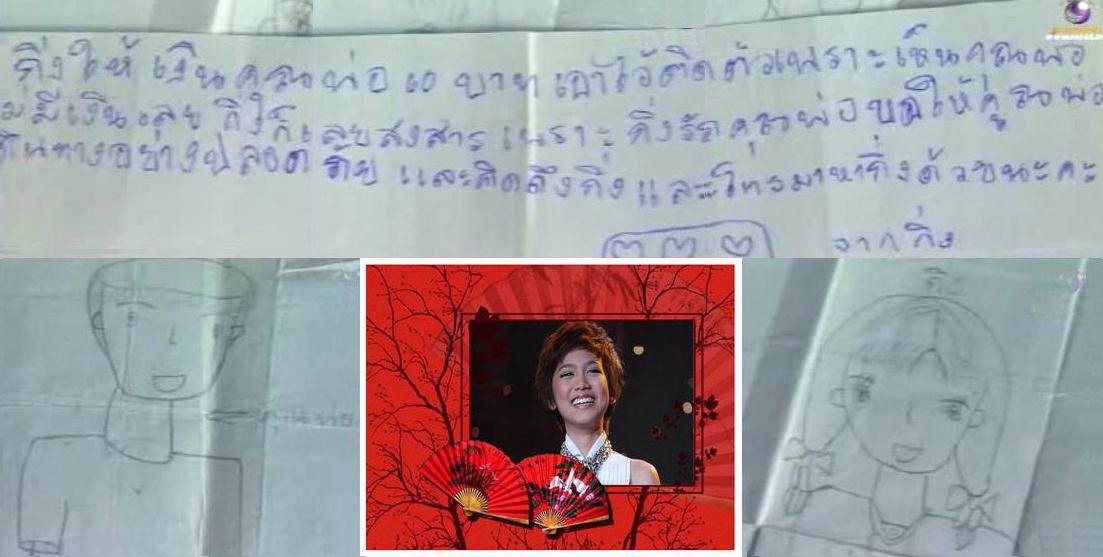 กิ่งให้เงินคุณพ่อ ๒๐ บาทเอาไว้ติดตัวเพราะเห็นคุณพ่อ
ไม่มีเงินเลย กิ่งก็เลยสงสาร เพราะกิ่งรักคุณพ่อขอให้คุณพ่อ
เดินทางอย่างปลอดภัย และคิดถึงกิ่งและโทรมาหากิ่งด้วยนะคะ
จากกิ่ง
กิ่ง